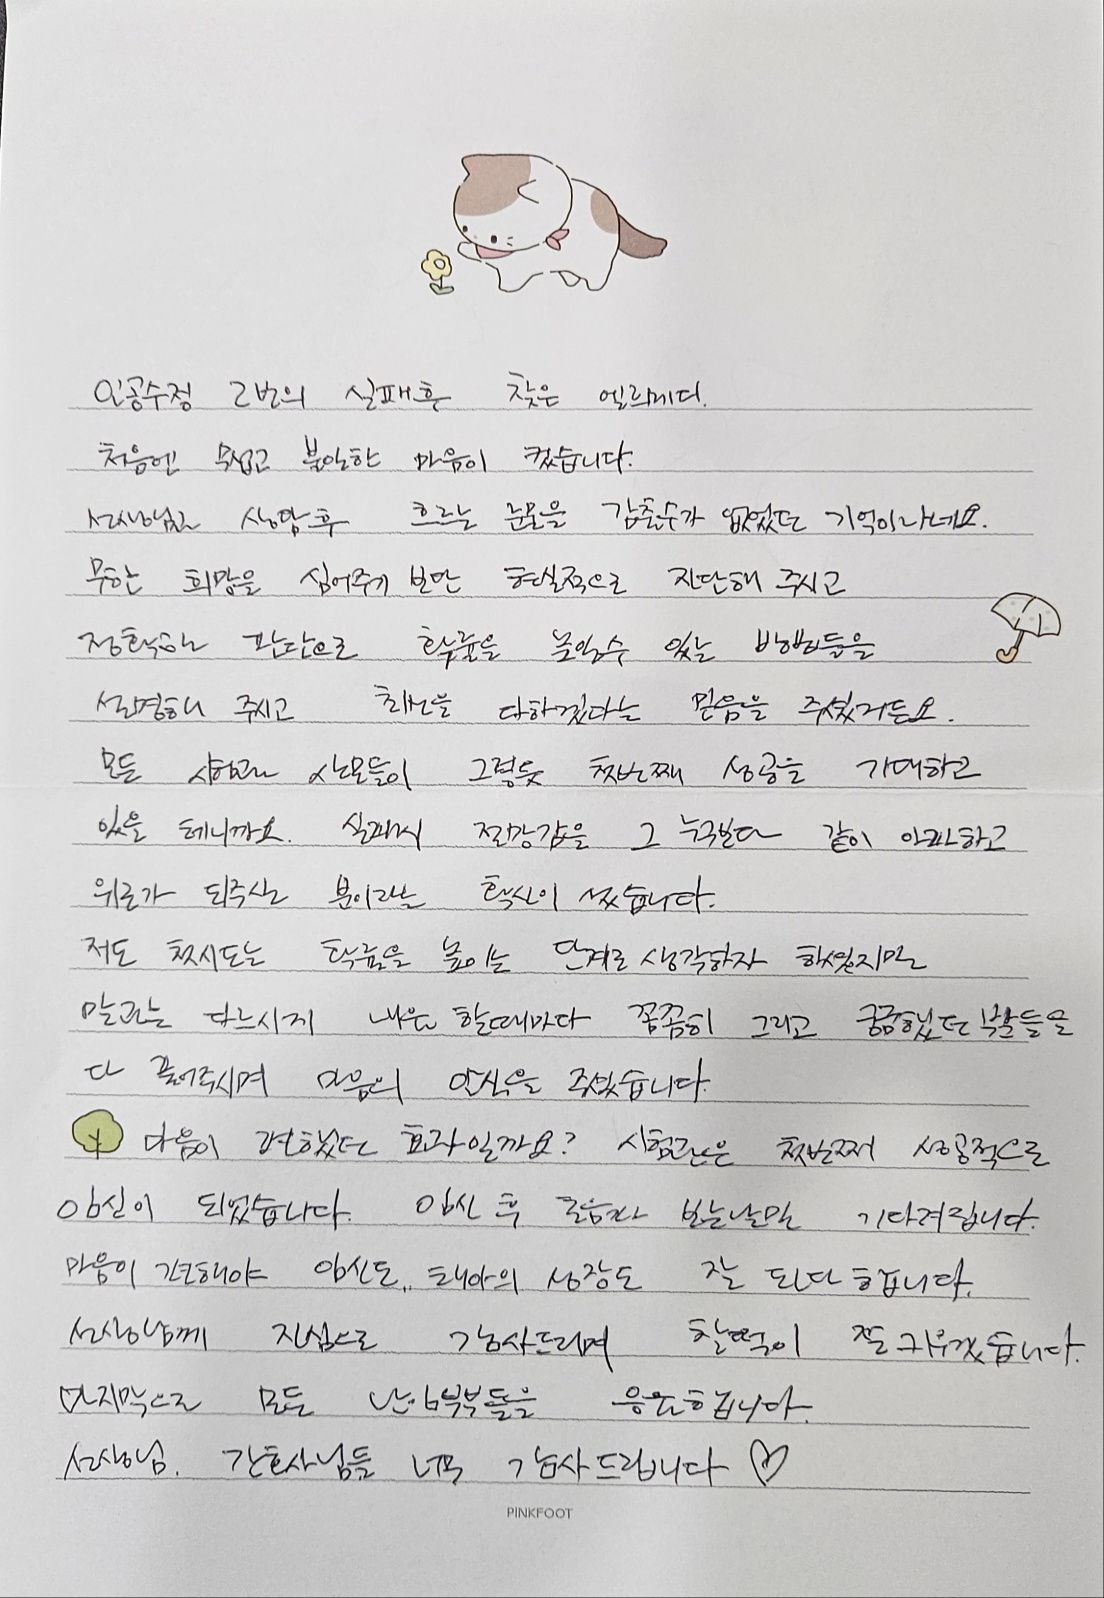 인공수정 2번의 실패후 찾은 엘르메디.
처음엔 무섭고 불안한 마음이 컸습니다.
선생님과 상담후 흐르는 눈물을 감출수가 없었던 기억이나네요.
무한 희망을 심어주기 보단 현실적으로 진단해 주시고
정확하는 판단으로 확률을 높일수 있는 방법들을
설명해 주시고 최선을 다하겠다는 믿음을 주셨거든요.
모든 시험관 산모들이 그렇듯 첫번째 성공을 기대하고
있을 테니까요. 실패시 절망감을 그 누구보다 같이 아파하고
위로가 되주시는 분이라는 확신이 섰습니다.
저도 첫시도는 확률을 높이는 단계로 생각하자 하였지만
말과는 다르시게 내원 할때마다 꼼꼼히 그리고 궁금했던 부분들을
다 풀어주시며 마음의 안식을 주셨습니다.
마음이 편했던 효과일까요? 시험관은 첫번째 성공적으로
임신이 되었습니다. 임신 후 초음파 보는날만 기다려집니다.
마음이 편해야 임신도, 태아의 성장도 잘 된다 합니다.
선생님께 진심으로 감사드리며 찰떡이 잘 키우겠습니다.
마지막으로 모든 난임부부들을 응원합니다.
선생님, 간호사님들 너무 감사드립니다 ♡
PINKFOOT